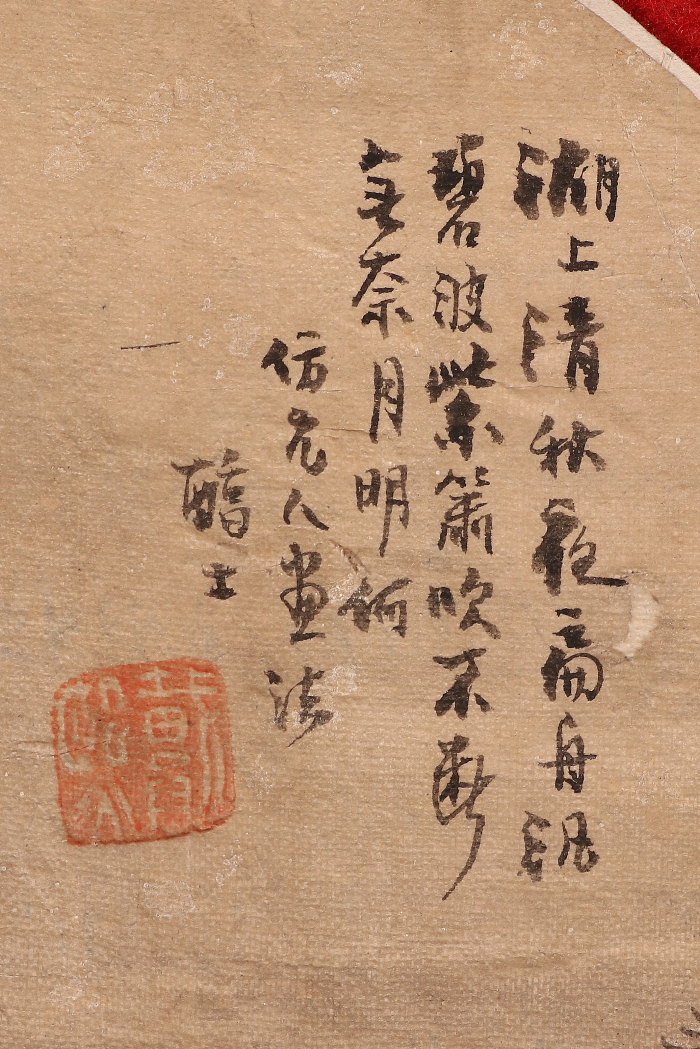 湖上清秋夜扁舟泛
碧波紫簫吹不斷
無奈月明何
仿元人畫法
醇士